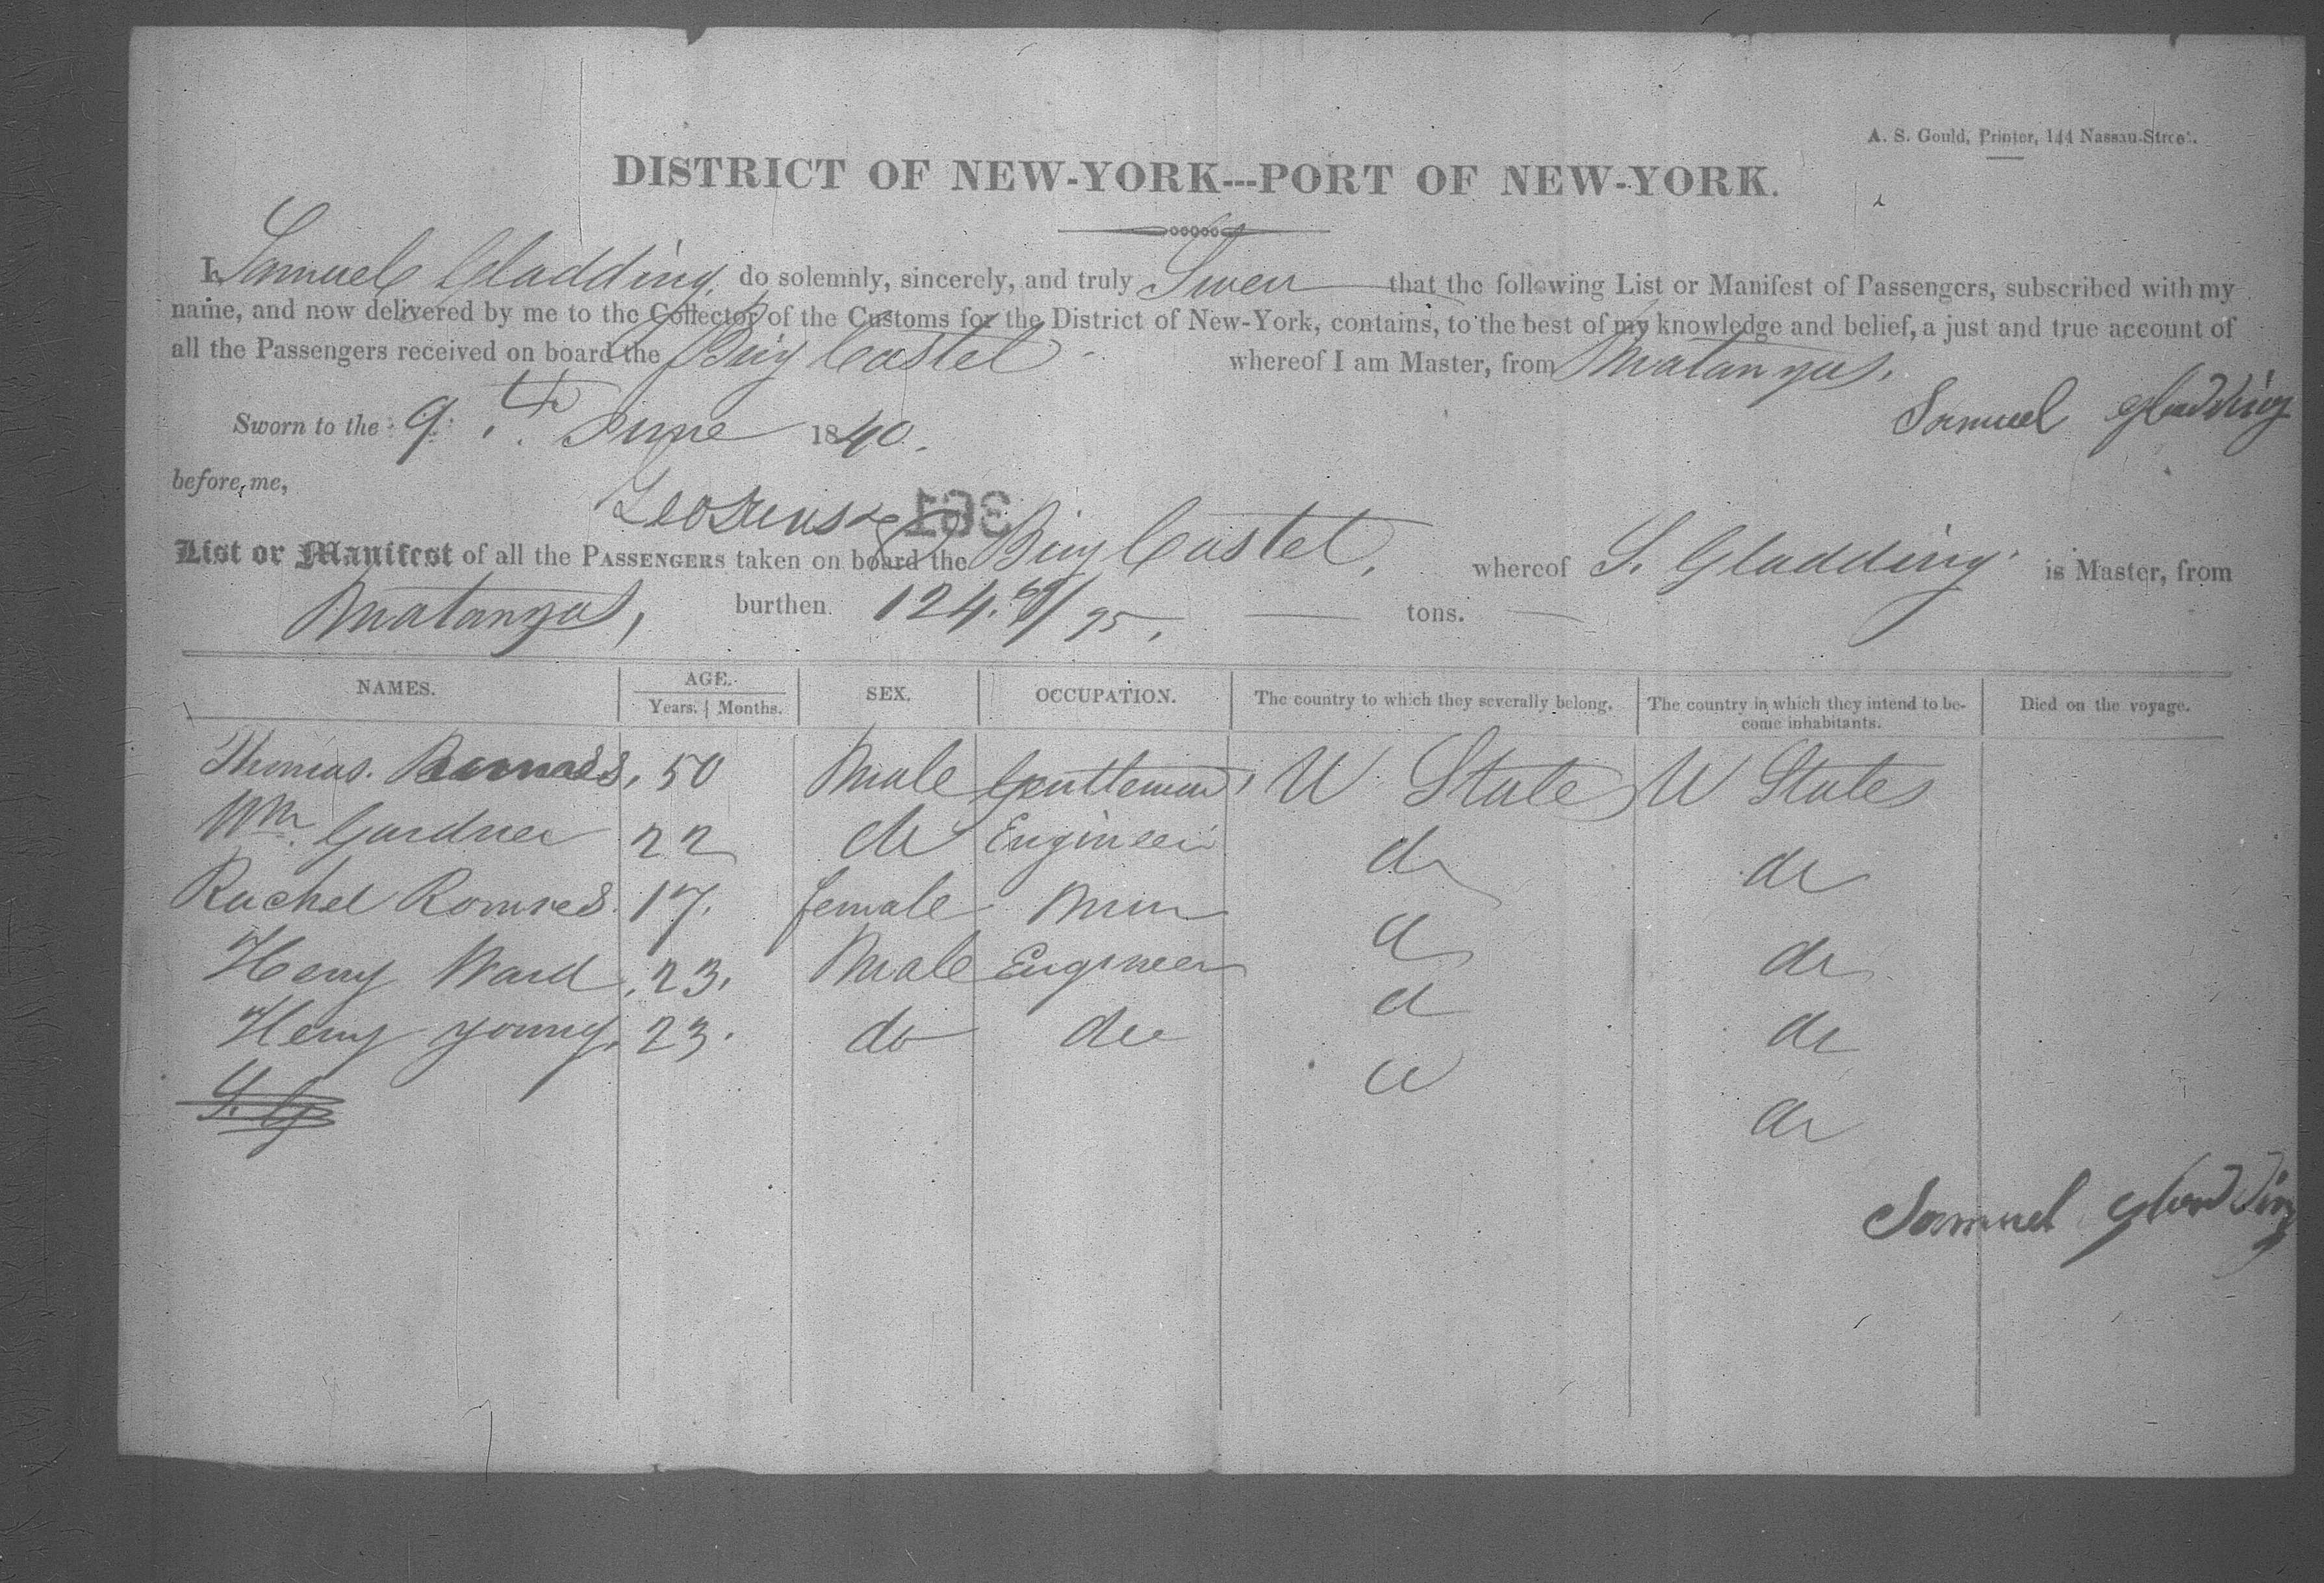 A. S. Gould, Printer, 144 Nassau-Street.
DISTRICT OF NEW-YORK---PORT OF NEW-YORK.
I, Samuel Gladding, do solemnly, sincerely, and truly Swear that the following List or Manifest of Passengers, subscribed with my
name, and now delivered by me to the Collector of the Customs for the District of New-York, contains, to the best of my knowledge and belief, a just and true account of
all the Passengers received on board the Brig Castel whereof I am Master, from Matanzas.
Sworn to the 9th June 1840.
Samuel Gladding
before me,
List or Manifest of all the PASSENGERS taken on board the Brig Castel, whereof S. Gladding is Master, from
Matanzas, burthen 124. /95. tons.
NAMES. AGE. Years. Months. SEX. OCCUPATION. The country to which they severally belong. The country in which they intend to become inhabitants. Died on the voyage.
Thomas. 50 Male Gentleman, U State U States
Wm. Gardner 22 do Engineer do do
Rachel Romnes 17. female do do
Henry Ward 23. Male Engineer do do
Henry young. 23. do do do do
S. G
Samuel Gladding